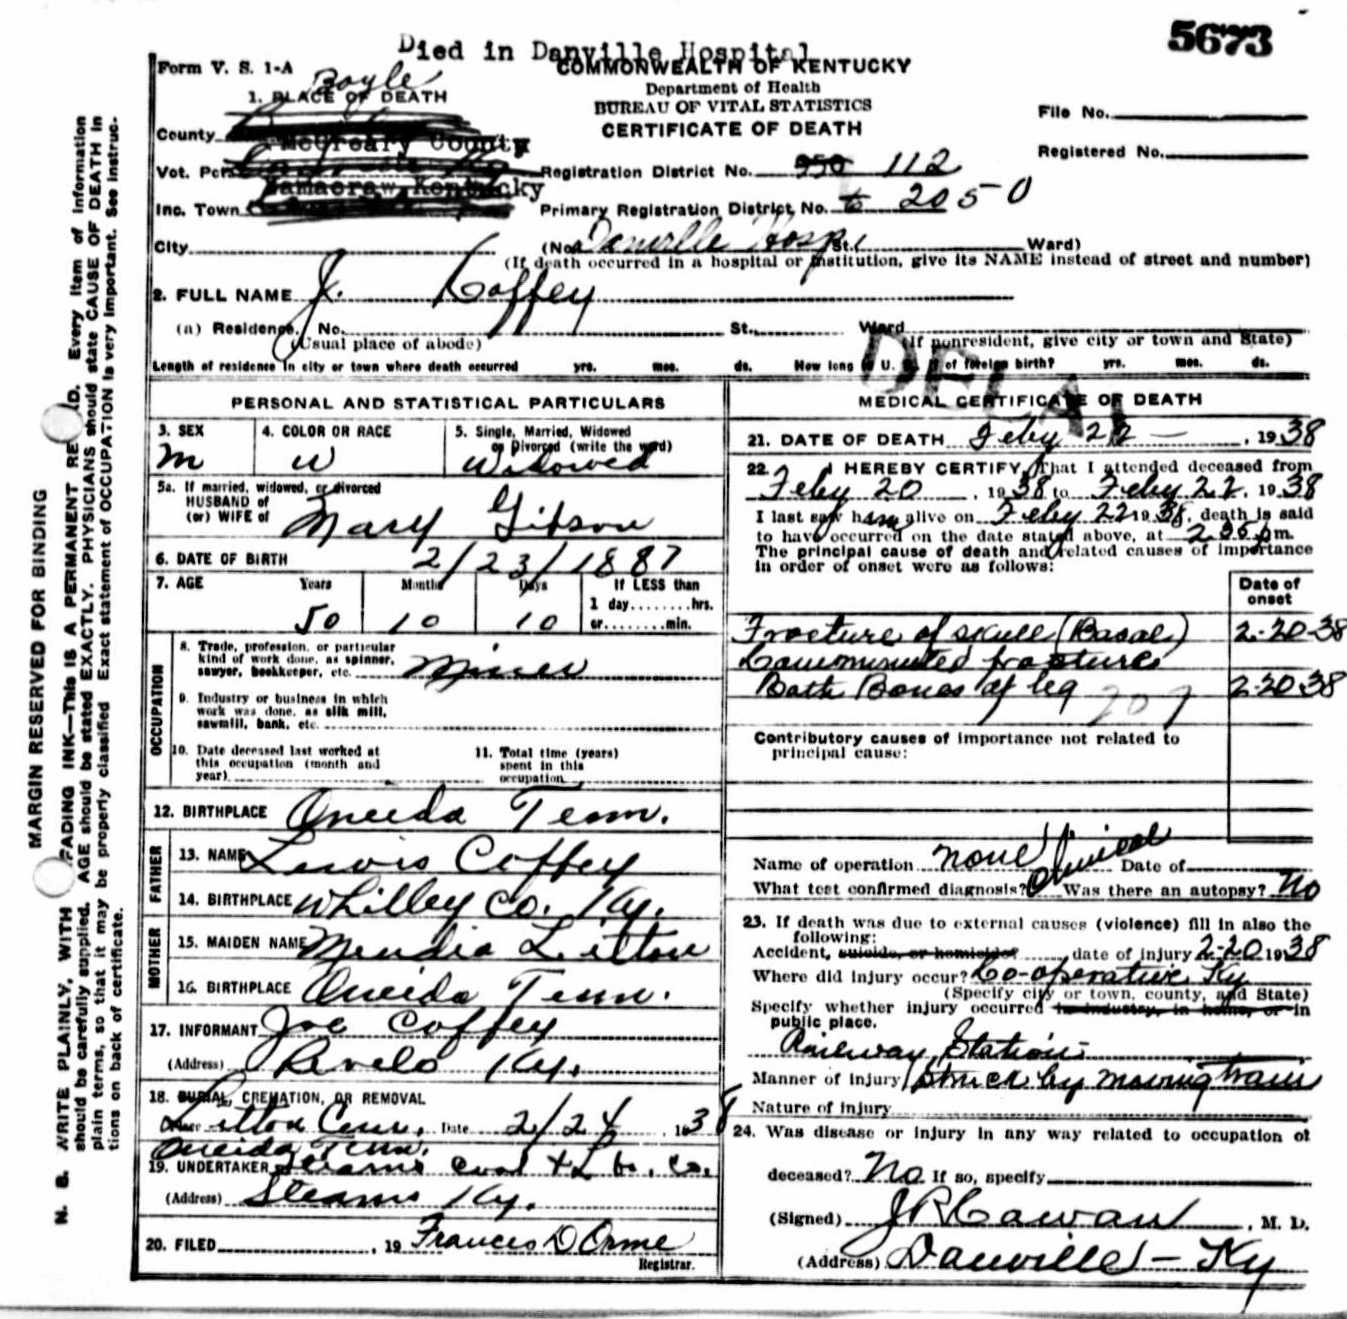 5673
Died in Danville Hospital
Form V. S. 1-A
COMMONWEALTH OF KENTUCKY
Department of Health
BUREAU OF VITAL STATISTICS
CERTIFICATE OF DEATH
File No.
Registered No.
Boyle
1. PLACE OF DEATH
County
McCreary County
Vot. Pct.
Yamacraw, Kentucky
Inc. Town
City
Registration District No. 950 112
Primary Registration District No. 2050
(No. Danville Hosp. St., Ward)
(If death occurred in a hospital or institution, give its NAME instead of street and number)
2. FULL NAME J. Coffey
(a) Residence. No. St., Ward
(Usual place of abode)
(If nonresident, give city or town and State)
Length of residence in city or town where death occurred yrs. mos. ds. How long in U. S. if of foreign birth? yrs. mos. ds.
PERSONAL AND STATISTICAL PARTICULARS
3. SEX
M
4. COLOR OR RACE
W
5. Single, Married, Widowed
or Divorced (write the word)
Widowed
5a. If married, widowed, or divorced
HUSBAND of
(or) WIFE of
Mary Gibson
6. DATE OF BIRTH 2/23/1887
7. AGE
Years Months Days
50 10 10
If LESS than
1 day........hrs.
or........min.
OCCUPATION
8. Trade, profession, or particular
kind of work done, as spinner,
sawyer, bookkeeper, etc. Miner
9. Industry or business in which
work was done, as silk mill,
sawmill, bank, etc.
10. Date deceased last worked at
this occupation (month and
year)
11. Total time (years)
spent in this
occupation
12. BIRTHPLACE Oneida Tenn.
FATHER
13. NAME Lewis Coffey
14. BIRTHPLACE Whitley Co. Ky.
MOTHER
15. MAIDEN NAME Litton
16. BIRTHPLACE Oneida Tenn.
17. INFORMANT Joe Coffey
(Address) Revelo Ky.
18. BURIAL, CREMATION, OR REMOVAL
Place Litton Cem. Date 2/24, 1938
Oneida Tenn.
19. UNDERTAKER Stearns Coal & Lbr. Co.
(Address) Stearns Ky.
20. FILED , 19 Frances D Orme
Registrar.
DELAY
MEDICAL CERTIFICATE OF DEATH
21. DATE OF DEATH Feby 22 — , 1938
22. I HEREBY CERTIFY, That I attended deceased from
Feby 20, 1938 to Feby 22, 1938
I last saw him alive on Feby 22 1938, death is said
to have occurred on the date stated above, at 2 35 p m.
The principal cause of death and related causes of importance
in order of onset were as follows:
Date of
onset
Fracture of skull (Basal) 2-20-38
Comminuted fracture
Both Bones of leg 2-20-38
207
Contributory causes of importance not related to
principal cause:
Name of operation none Date of
What test confirmed diagnosis? Clinical Was there an autopsy? No
23. If death was due to external causes (violence) fill in also the
following:
Accident, suicide, or homicide? date of injury 2-20 1938
Where did injury occur? Co-operative Ky
(Specify city or town, county, and State)
Specify whether injury occurred in industry, in home, or in
public place.
Railway Station
Manner of injury Struck by moving train
Nature of injury
24. Was disease or injury in any way related to occupation of
deceased? No If so, specify
(Signed) J R Cowan, M. D.
(Address) Danville - Ky
MARGIN RESERVED FOR BINDING
N. B. WRITE PLAINLY, WITH FADING INK—This IS A PERMANENT RE RD. Every item of information
should be carefully supplied. AGE should be stated EXACTLY. PHYSICIANS should state CAUSE OF DEATH in
plain terms, so that it may be properly classified. Exact statement of OCCUPATION is very important. See instruc-
tions on back of certificate.